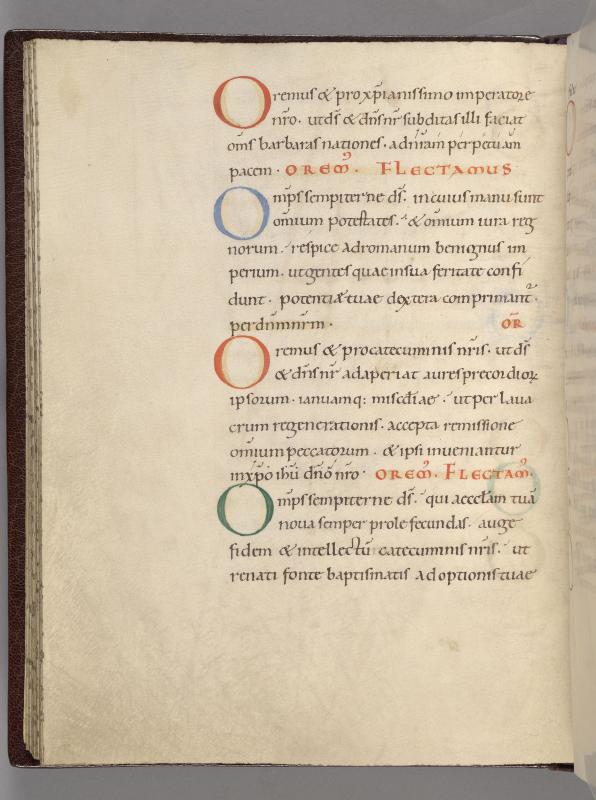 Oremus & pro xp̄ianissimo imperatore
nr̄o. ut ds̄ & dn̄s nr̄ subditas illi faciat
om̄s barbaras nationes. ad nr̄am perpetuam
pacem. OREMꝰ. FLECTAMUS
Omp̄s sempiterne ds̄. in cuius manu sunt
om̄ium potestates. & om̄ium iura reg
norum. respice ad romanum benignus im
perium. ut gentes quae in sua feritate confi
dunt. potentiæ tuae dextera comprimant̄.
per dn̄m nr̄m. OR̄
Oremus & pro catecuminis nr̄is. ut ds̄
& dn̄s nr̄ adaperiat aures precordiorꝝ
ipsorum. ianuamq: misc̄diae. ut per laua
crum regenerationis. accepta remissione
om̄ium peccatorum. & ipsi inueniantur
in xp̄o ihū dn̄o nr̄o. OREMꝰ. FLECTAMꝰ.
Omp̄s sempiterne ds̄. qui aeccl̄am tuā
noua semper prole fecundas. auge
fidem & intellectū catecuminis nr̄is. ut
renati fonte baptismatis adoptionis tuae